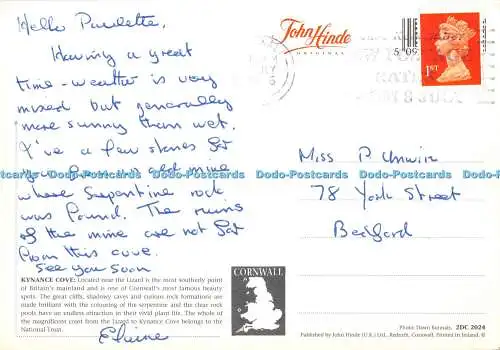 Hello Paulette,
Having a great
time - weather is very
mixed but generally
more sunny than wet.
I've a few stones for
you from an old mine
where serpentine rock
was found. The ruins
of the mine are not far
from this cove.
See you soon
Elaine
KYNANCE COVE: Located near the Lizard is the most southerly point
of Britain's mainland and is one of Cornwall's most famous beauty
spots. The great cliffs, shadowy caves and curious rock formations are
made brilliant with the colouring of the serpentine and the clear rock
pools have an endless attraction in their vivid plant life. The whole
of the magnificent coast from the Lizard to Kynance Cove belongs to the
National Trust.
CORNWALL
John Hinde
ORIGINAL
5 09
1ST
Miss P. Unwin
78 York Street
Bedford
2DC 2024
Published by John Hinde (U.K.) Ltd., Redruth, Cornwall. Printed in Ireland. ©
Dodo-Postcards Dodo-Postcards Dodo-Postcards Dodo-Postcards Dodo-Postcards